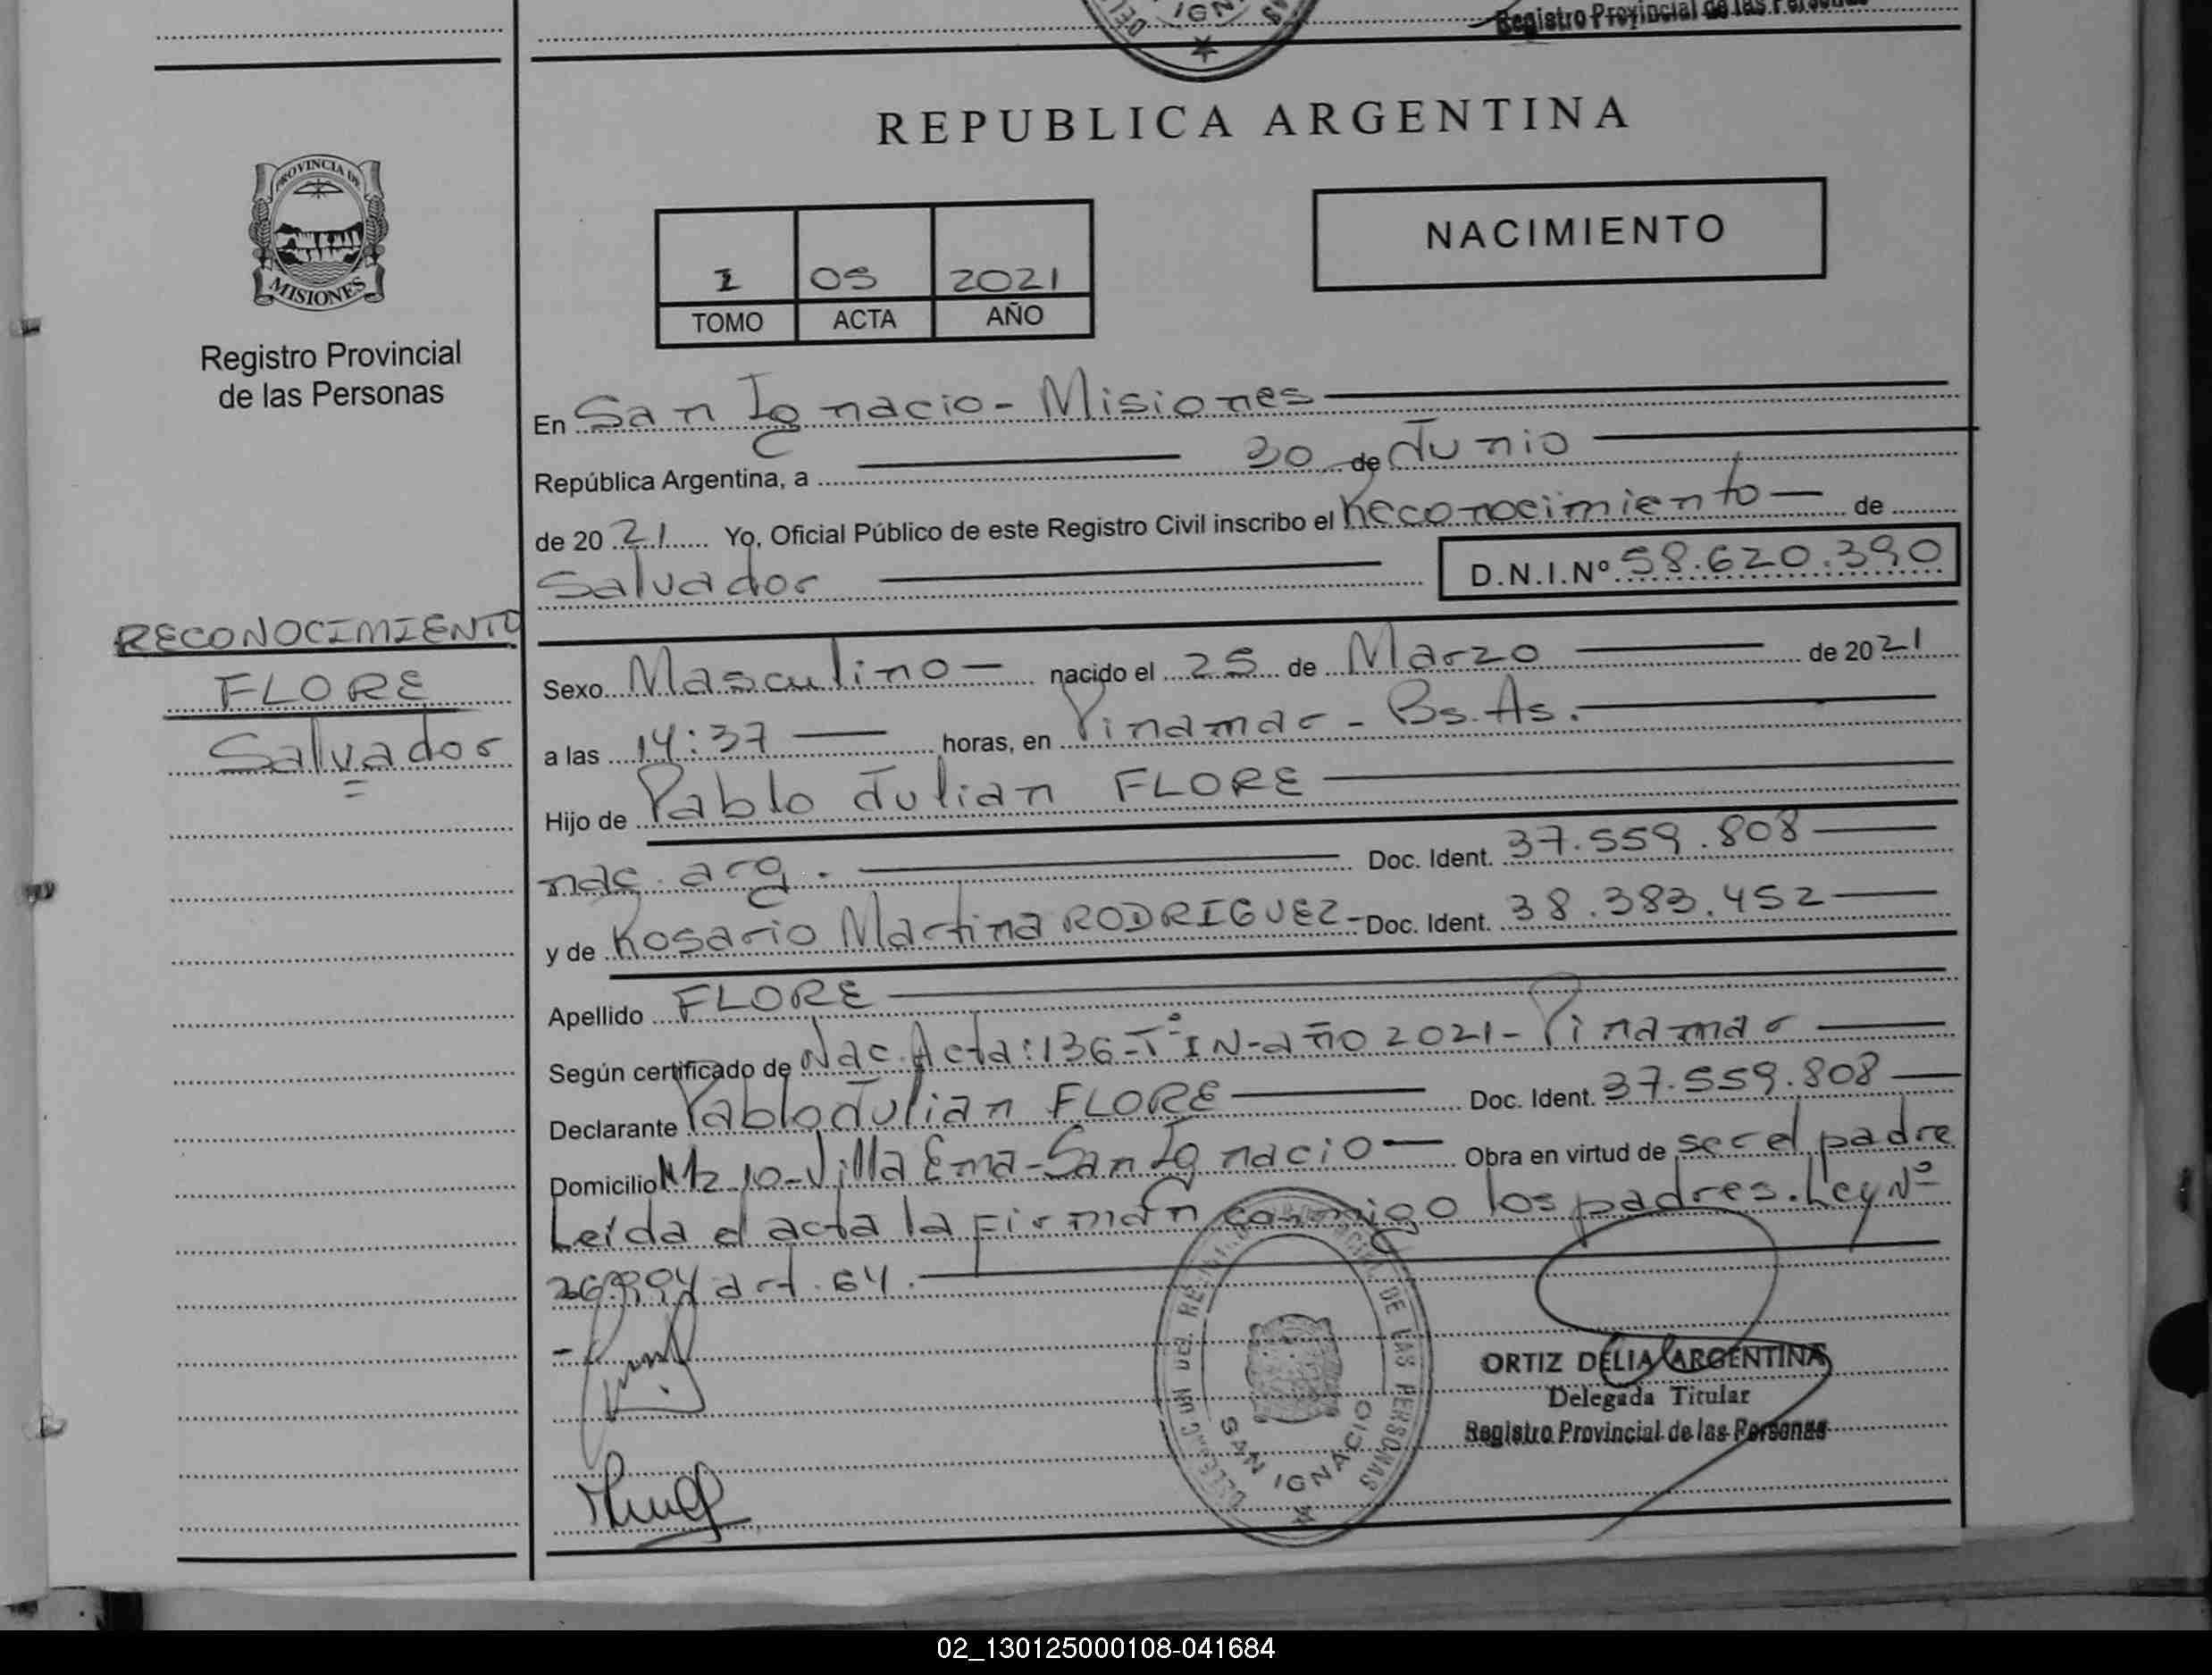 Registro Provincial de las Personas
REPUBLICA ARGENTINA
PROVINCIA DE
MISIONES
Registro Provincial
de las Personas
NACIMIENTO
I 05 2021
TOMO ACTA AÑO
En San Ignacio - Misiones
República Argentina, a 30 de Junio
de 20 21 Yo, Oficial Público de este Registro Civil inscribo el Reconocimiento de
Salvador D.N.I.Nº 58.620.390
RECONOCIMIENTO
FLORE
Salvador
Sexo Masculino nacido el 25 de Marzo de 20 21
a las 14:37 horas, en Pinamar - Bs. As.
Hijo de Pablo Julian FLORE
nac. arg. Doc. Ident. 37.559.808
y de Rosario Martina RODRIGUEZ - Doc. Ident. 38.383.452
Apellido FLORE
Según certificado de Nac. Acta: 136 - Tº IN - año 2021 - Pinamar
Declarante Pablo Julian FLORE Doc. Ident. 37.559.808
Domicilio Mz 10 - Villa Ema - San Ignacio Obra en virtud de ser el padre
Leída el acta la firman conmigo los padres. Ley Nº
26.994 art. 64.
DE LAS PERSONAS
SAN IGNACIO
ORTIZ DELIA ARGENTINA
Delegada Titular
Registro Provincial de las Personas
02_130125000108-041684